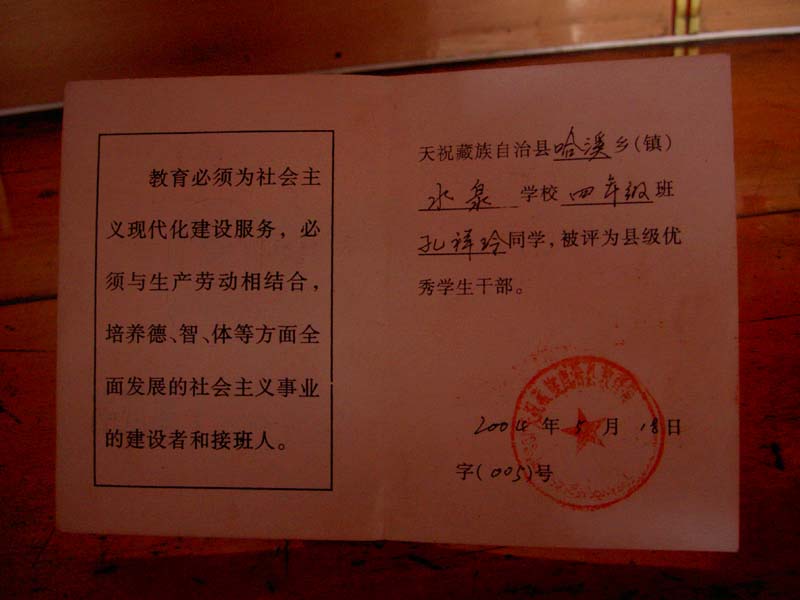 教育必须为社会主
义现代化建设服务，必
须与生产劳动相结合，
培养德、智、体等方面全
面发展的社会主义事业
的建设者和接班人。
天祝藏族自治县哈溪乡(镇)
水泉 学校 四年级班
孔祥玲同学，被评为县级优
秀学生干部。
2004 年 5 月 18 日
字(005)号